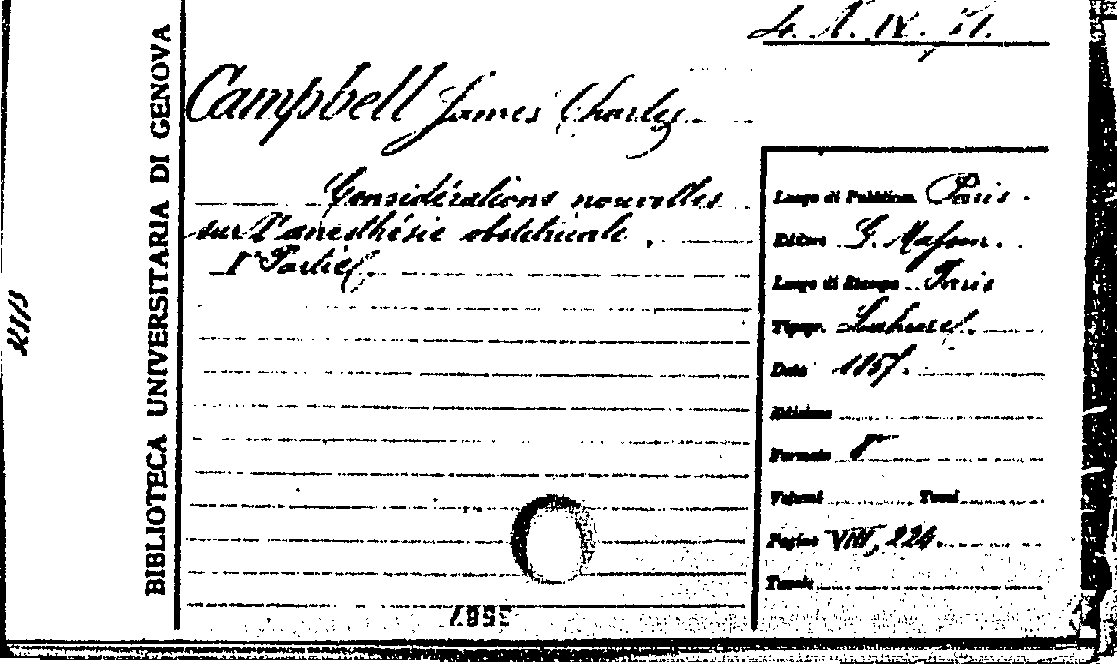 4. X. IV. 71.
BIBLIOTECA UNIVERSITARIA DI GENOVA
Campbell James Charles
Considérations nouvelles
sur l'anesthésie obstétricale.
1e Partie
Luogo di Pubblicaz. Paris.
Editore G. Masson.
Luogo di Stampa Paris
Tipogr. Lahure.
Data
Edizione
Formato 8°
Volumi Tomi
Pagine VIII, 224.
Tavole
3587